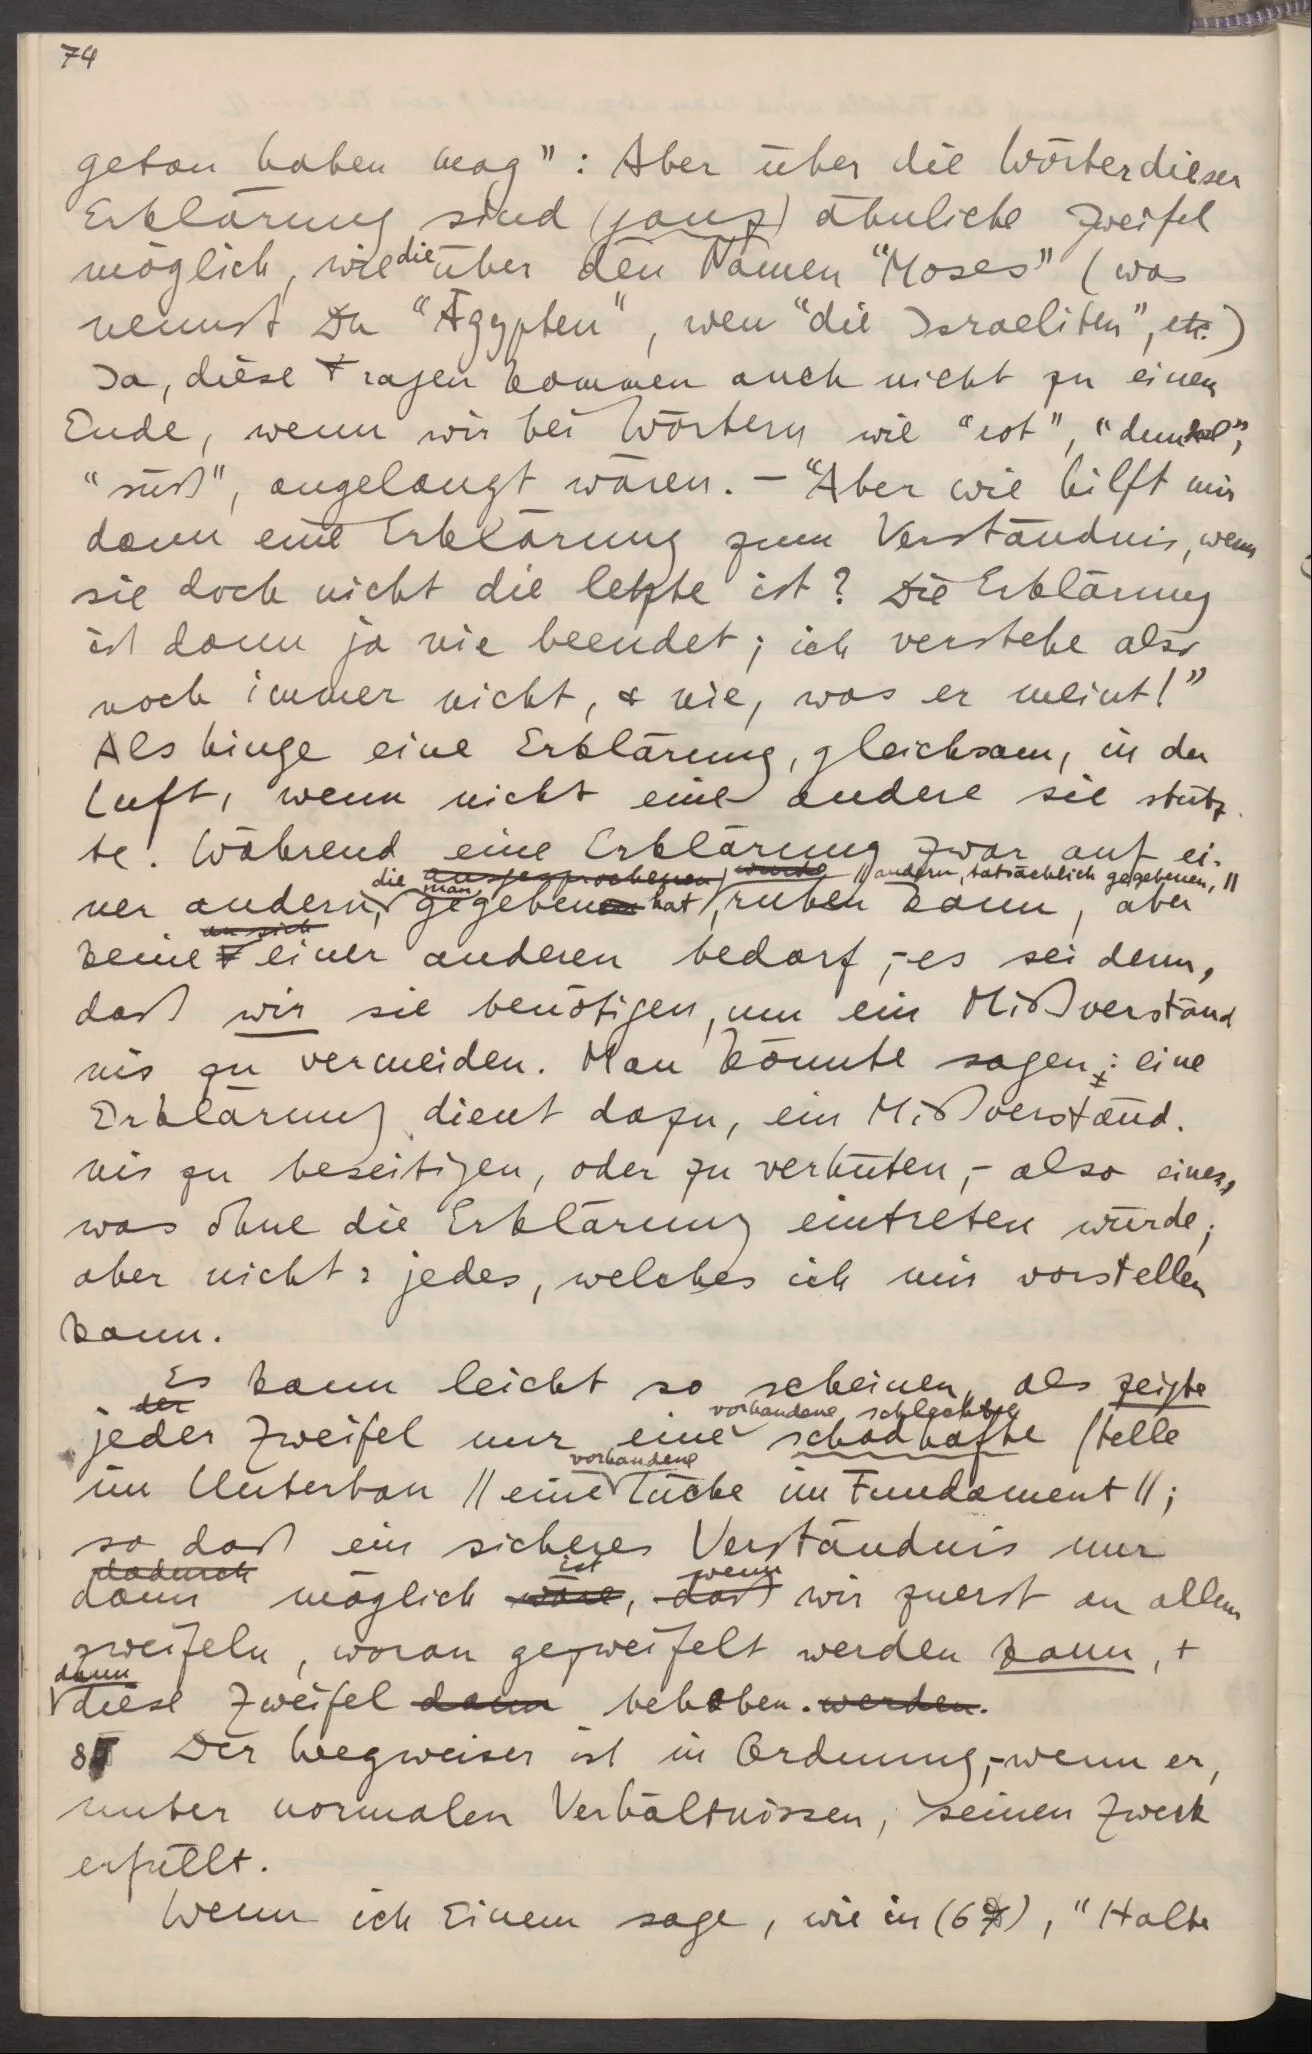 74
getan haben mag": Aber über die Wörter dieser
Erklärung sind (ganz) ähnliche Zweifel
möglich, wie die über den Namen "Moses" (was
nennst Du "Ägypten", wen "die Israeliten", etc.)
Ja, diese Fragen kommen auch nicht zu einem
Ende, wenn wir bei Wörtern wie "rot", "dunkel",
"süß", angelangt wären. – "Aber wie hilft mir
dann eine Erklärung zum Verständnis, wenn
sie doch nicht die letzte ist? Die Erklärung
ist dann ja nie beendet; ich verstehe also
noch immer nicht, & nie, was er meint!"
Als hinge eine Erklärung, gleichsam, in der
Luft, wenn nicht eine andere sie stütz-
te. Während eine Erklärung zwar auf ei-
die ausgesprochenen wurde // andern, tatsächlich gegebenen, //
ner andern, man gegebenen hat, ruhen kann, aber
an sich
keine einer anderen bedarf, – es sei denn,
daß wir sie benötigen, um ein Mißverständ
nis zu vermeiden. Man könnte sagen: eine
Erklärung dient dazu, ein Mißverständ-
nis zu beseitigen, oder zu verhüten, – also eines,
was ohne die Erklärung eintreten würde;
aber nicht: jedes, welches ich mir vorstellen
kann.
Es kann leicht so scheinen, als zeigte
der vorhandene schlechte
jeder Zweifel nur eine schadhafte Stelle
vorhandene
im Unterbau // eine Lücke im Fundament //;
so daß ein sicheres Verständnis nur
dadurch ist wenn
dann möglich wäre, daß wir zuerst an allem
zweifeln, woran gezweifelt werden kann, +
dann
diese Zweifel dann behoben. werden.
Der Wegweiser ist in Ordnung, – wenn er,
unter normalen Verhältnissen, seinen Zweck
erfüllt.
Wenn ich Einem sage, wie in , "Halte